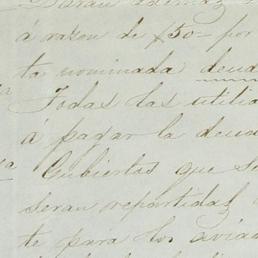 á razon de $50— por
ta nominada deud
Todas las utilid
á pagar la deud
Cubiertos que se
seran repartidas
te para los aviad